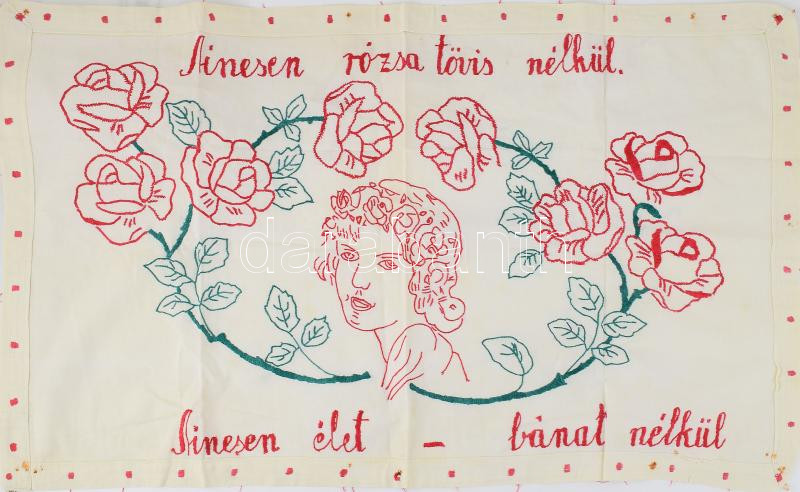 Nincsen rózsa tövis nélkül.
darabanth
Nincsen élet – bánat nélkül